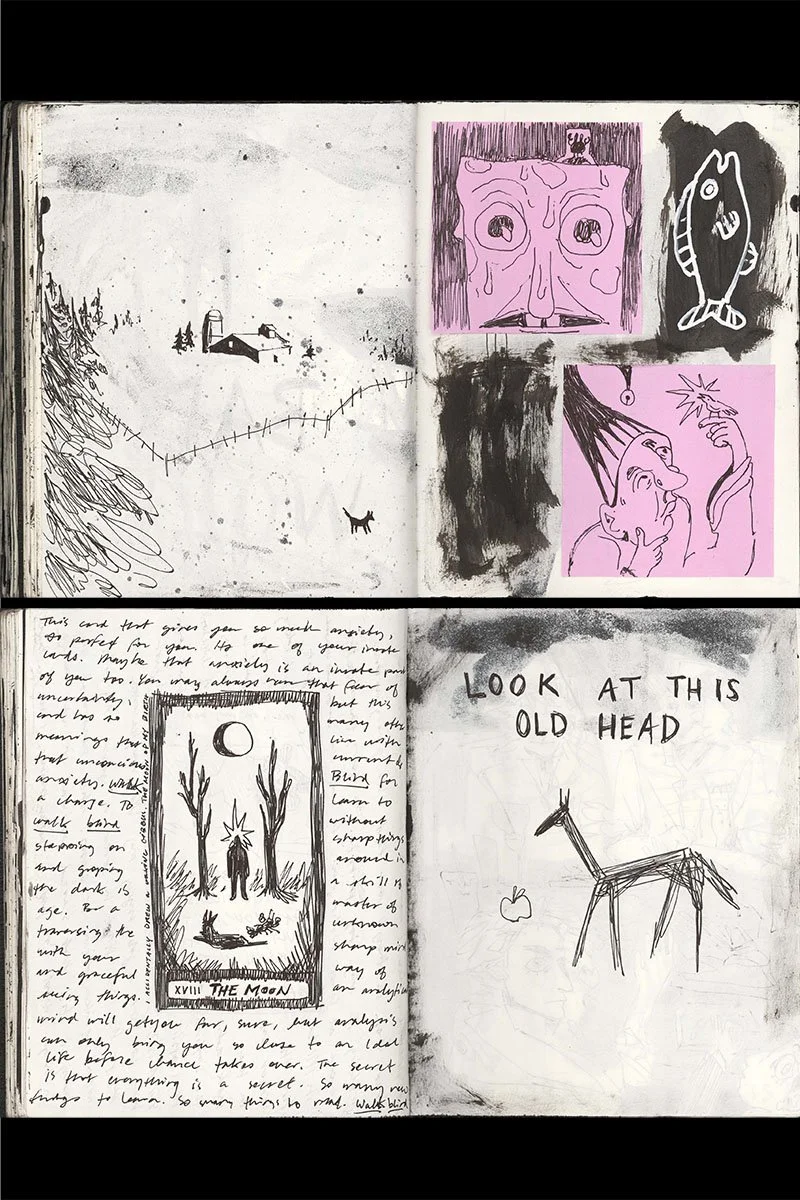 This card that gives you so much anxiety,
so perfect for you. Its one of your innate
cards. Maybe that anxiety is an innate part
of you too. You may always own that fear of
uncertainty, but this
card has so many othe
meanings that live with
that unconcious current
anxiety. Walk Blind for
a change. To learn to
walk blind without
stepping on sharp things
and groping around in
the dark is a skill is
age. For a master of
traversing the unknown
with your sharp mind
and graceful way of
seeing things. an analytica
mind will get you far, sure, but analysis
can only bring you so close to an Ideal
life before chance takes over. The secret
is that everything is a secret. So many new
things to learn. So many things to read. Walk blind
I ACCIDENTALLY DREW A WANING THE MOON OF MY BIRTH
XVIII THE MOON
LOOK AT THIS
OLD HEAD